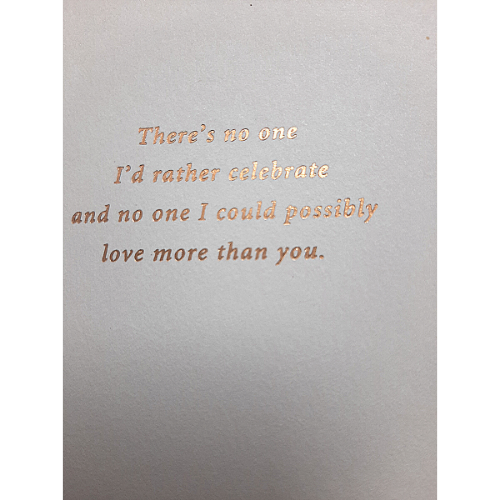 There's no one
I'd rather celebrate
and no one I could possibly
love more than you.